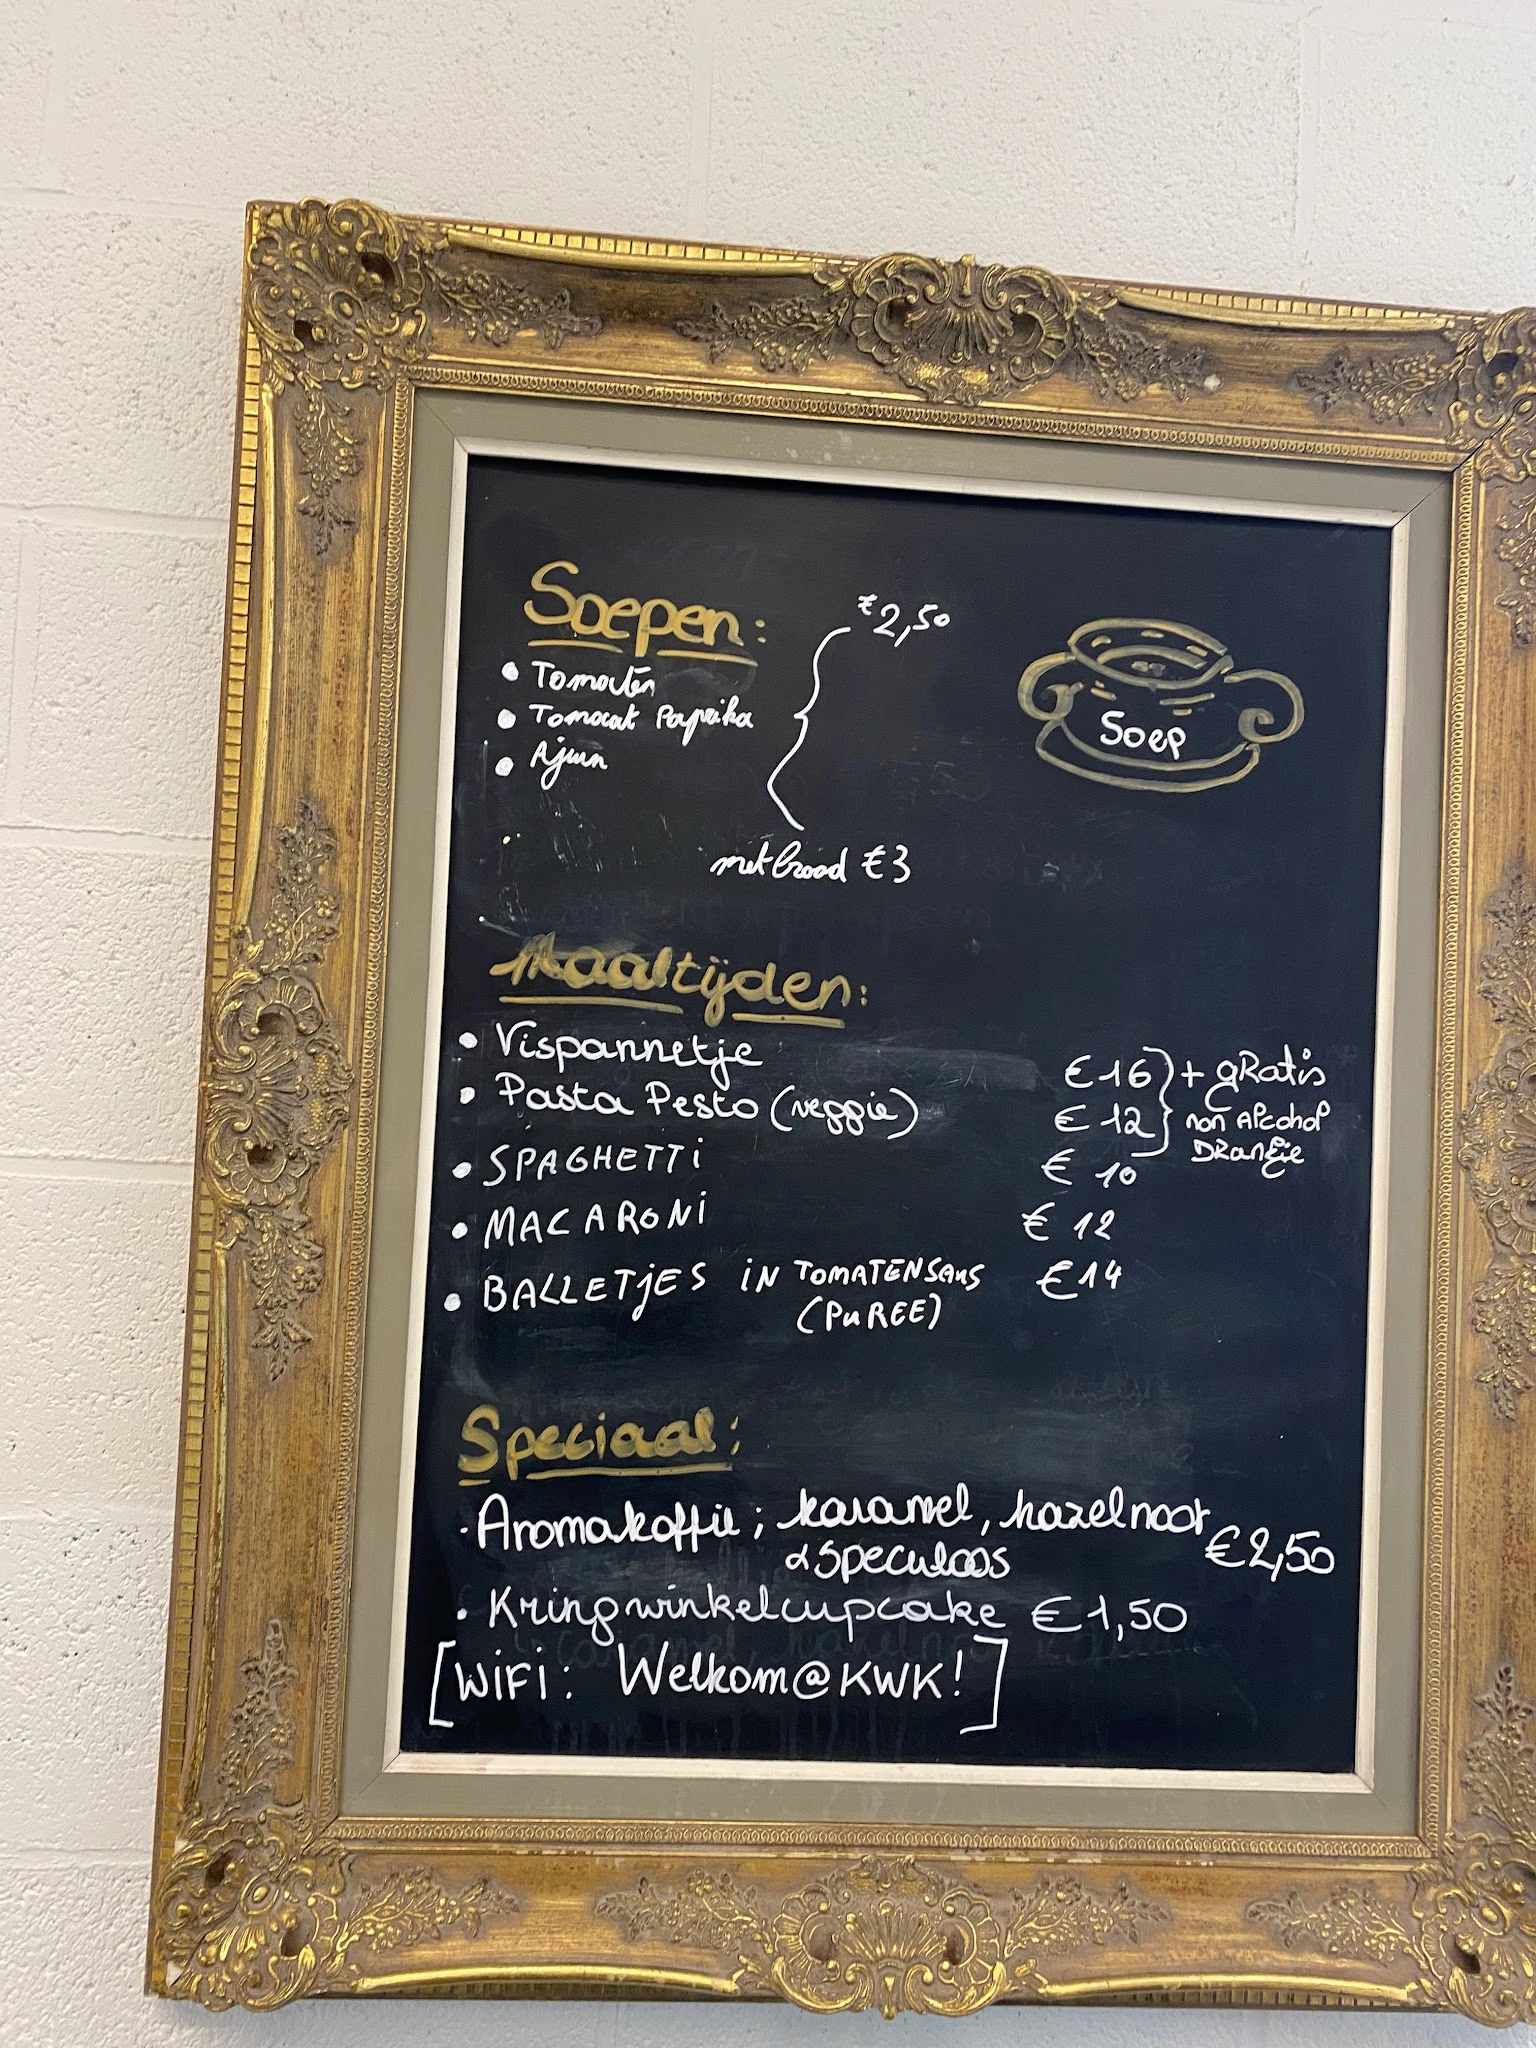 Soepen:
€2,50
• Tomaten
• Tomaat Paprika
• Ajuin
Soep
met brood €3
Maaltijden:
• Vispannetje €16 + gRatis
• Pasta Pesto (veggie) €12 non Alcohol
DRankje
• SPAGHETTi € 10
• MACARONi € 12
• BALLETjES iN TOMATENSAUS €14
(PUREE)
Speciaal:
· Aromakoffie; karamel, hazelnoot
& speculoos €2,50
• Kringwinkelcupcake €1,50
[WiFi: Welkom@KWK!]